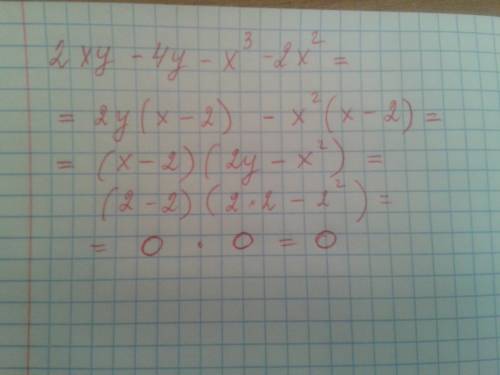 2xy - 4y - x³ - 2x² =
= 2y(x - 2) - x²(x - 2) =
= (x - 2)(2y - x²) =
(2 - 2)(2·2 - 2²) =
= 0 · 0 = 0